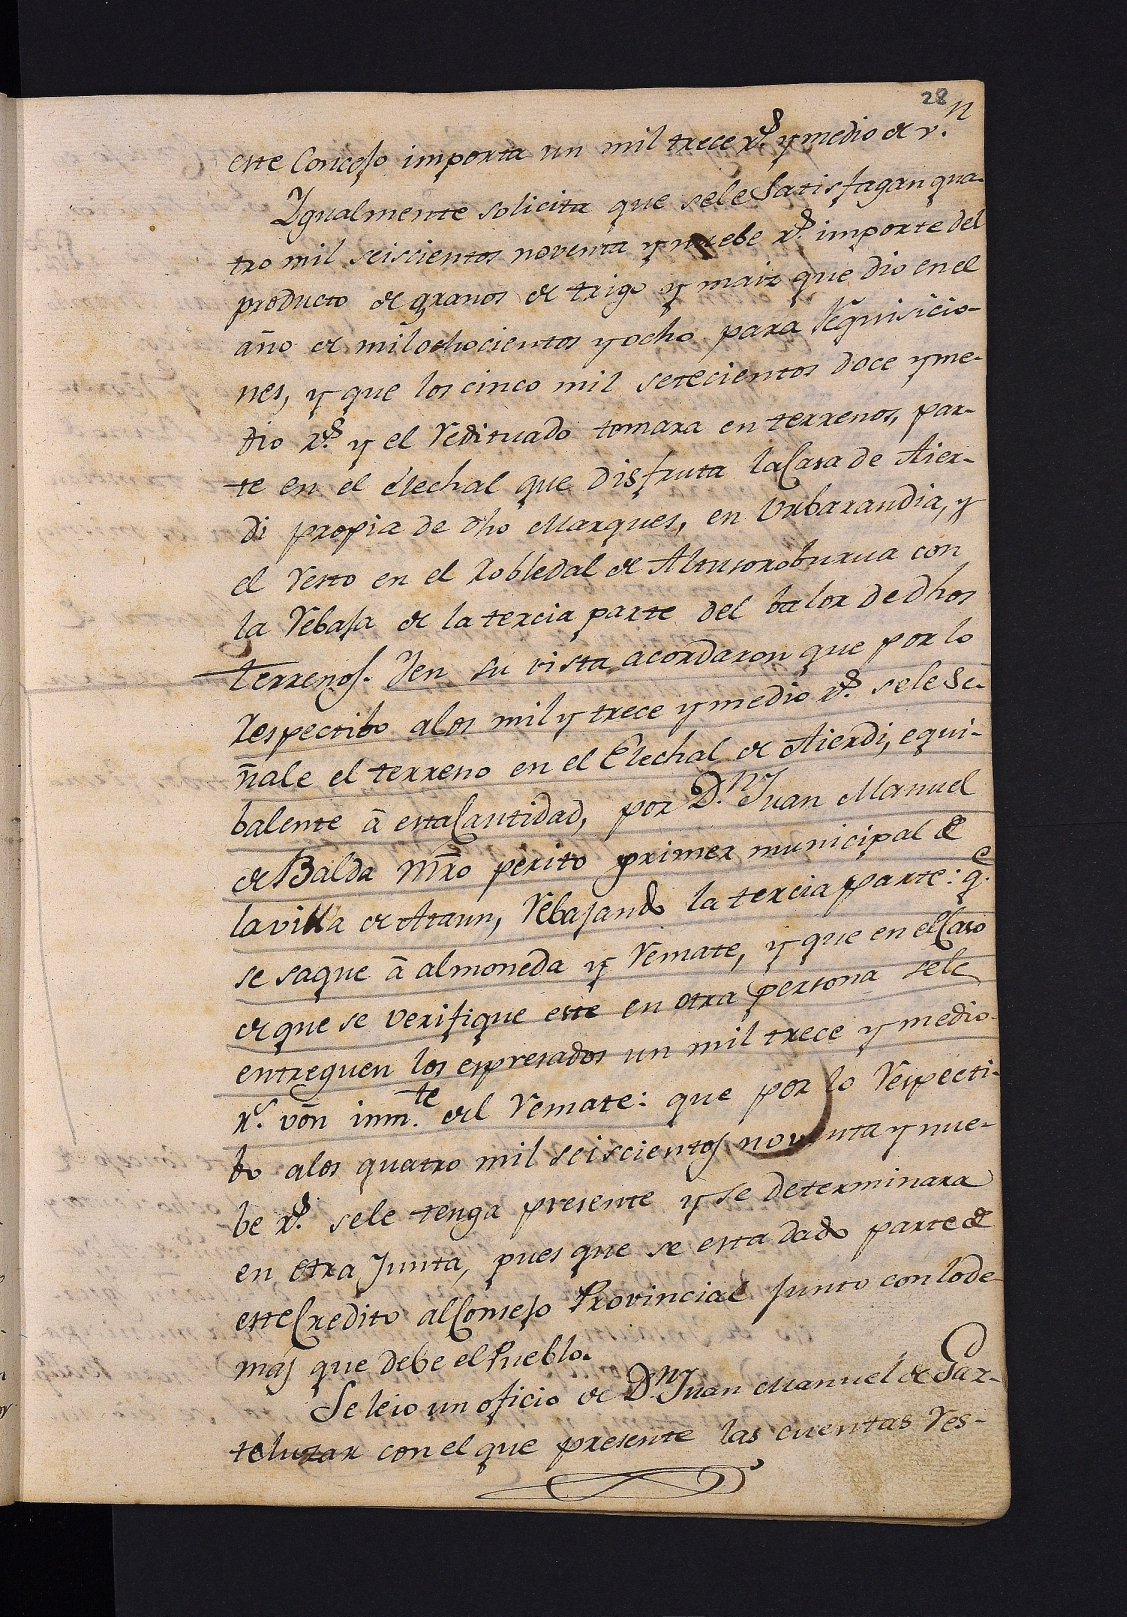 28
este Concejo importa un mil trece rs. y medio de v.n
Ygualmente solicita que sele Satisfagan qua-
tro mil seiscientos noventa y nuebe rs. importe del
producto de granos de trigo y maiz que dio en el
año de mil ochocientos y ocho para requisicio-
nes, y que los cinco mil setecientos doce y me-
dio rs. y el redituado tomara en terrenos, par-
te en el elechal que disfruta la Casa de Aier-
di propia de dho Marques, en Urbarandia, y
el resto en el Robledal de con
la rebaja de la tercia parte del balor de dhos
terrenos. Yen su vista acordaron que por lo
respectibo alos mil y trece y medio rs. sele Se-
ñale el terreno en el Elechal de Aierdi, equi-
balente à esta Cantidad, por D.n Juan Manuel
de Balda Mro perito primer municipal de
la villa de Ataun, rebajando la tercia parte: q.e
se saque à almoneda y remate, y que en el Caso
de que se verifique este en otra persona sele
entreguen los espresados un mil trece y medio
rs. von inm.te del remate: que por lo respecti-
bo alos quatro mil seiscientos noventa y nue-
be rs. sele tenga presente y se determinara
en otra Junta, pues que se esta dado parte de
este Credito al Consejo Provincial junto con lode-
mas que debe el Pueblo.
Se leio un oficio de D.n Juan Manuel de Gaz-
teluzar con el que presente las cuentas res-